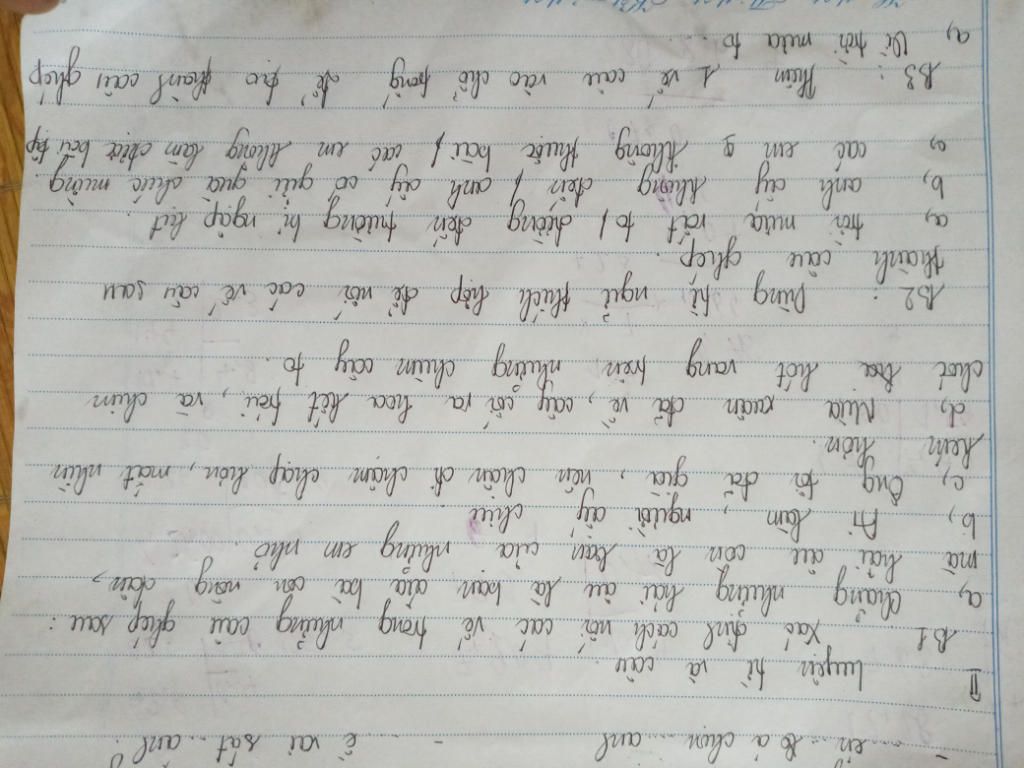 ... anh - ... ê vai sát ... anh.
II Luyện từ và câu
B1 Xác định cách nối các vế trong những câu ghép sau :
a, Chẳng những hải âu là bạn của bà con nông dân,
mà hải âu còn là bạn của những em nhỏ.
b, Ai làm, người ấy chịu
c, Ông tôi đã già, nên chân đi chậm chạp hơn, mắt nhìn
kém hơn.
d, Mùa xuân đã về, cây cối ra hoa kết trái, và chim
hót vang trên những chùm cây to.
B2 : Dùng từ ngữ thích hợp để nối các vế câu sau
thành câu ghép.
a, trời mưa rất to /, đường đến trường bị ngập lụt.
b, anh ấy không đến /, anh ấy có gửi quà chúc mừng.
c, các em không thuộc bài /, các em không làm bài tập
B3 : Thêm 1 vế câu vào chỗ trống để tạo thành câu ghép
a, Vì trời mưa to ....